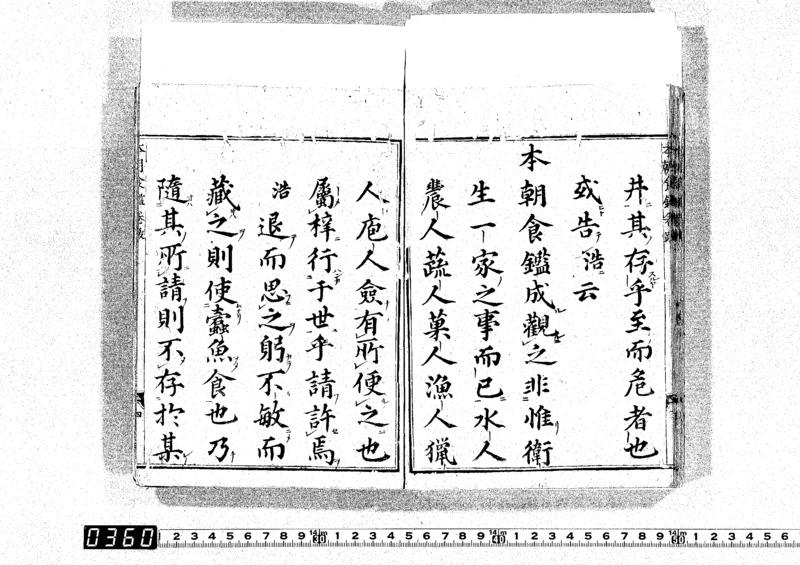 井其存乎至而危者也
或告浩云
本朝食鑑成觀之非惟衛
生一家之事而已水人
農人蔬人菓人漁人獵
人庖人僉有所便之也
屬梓行于世乎請許焉
浩退而思之躬不敏而
藏之則使蠹魚食也乃
隨其所請則不存於某
0360